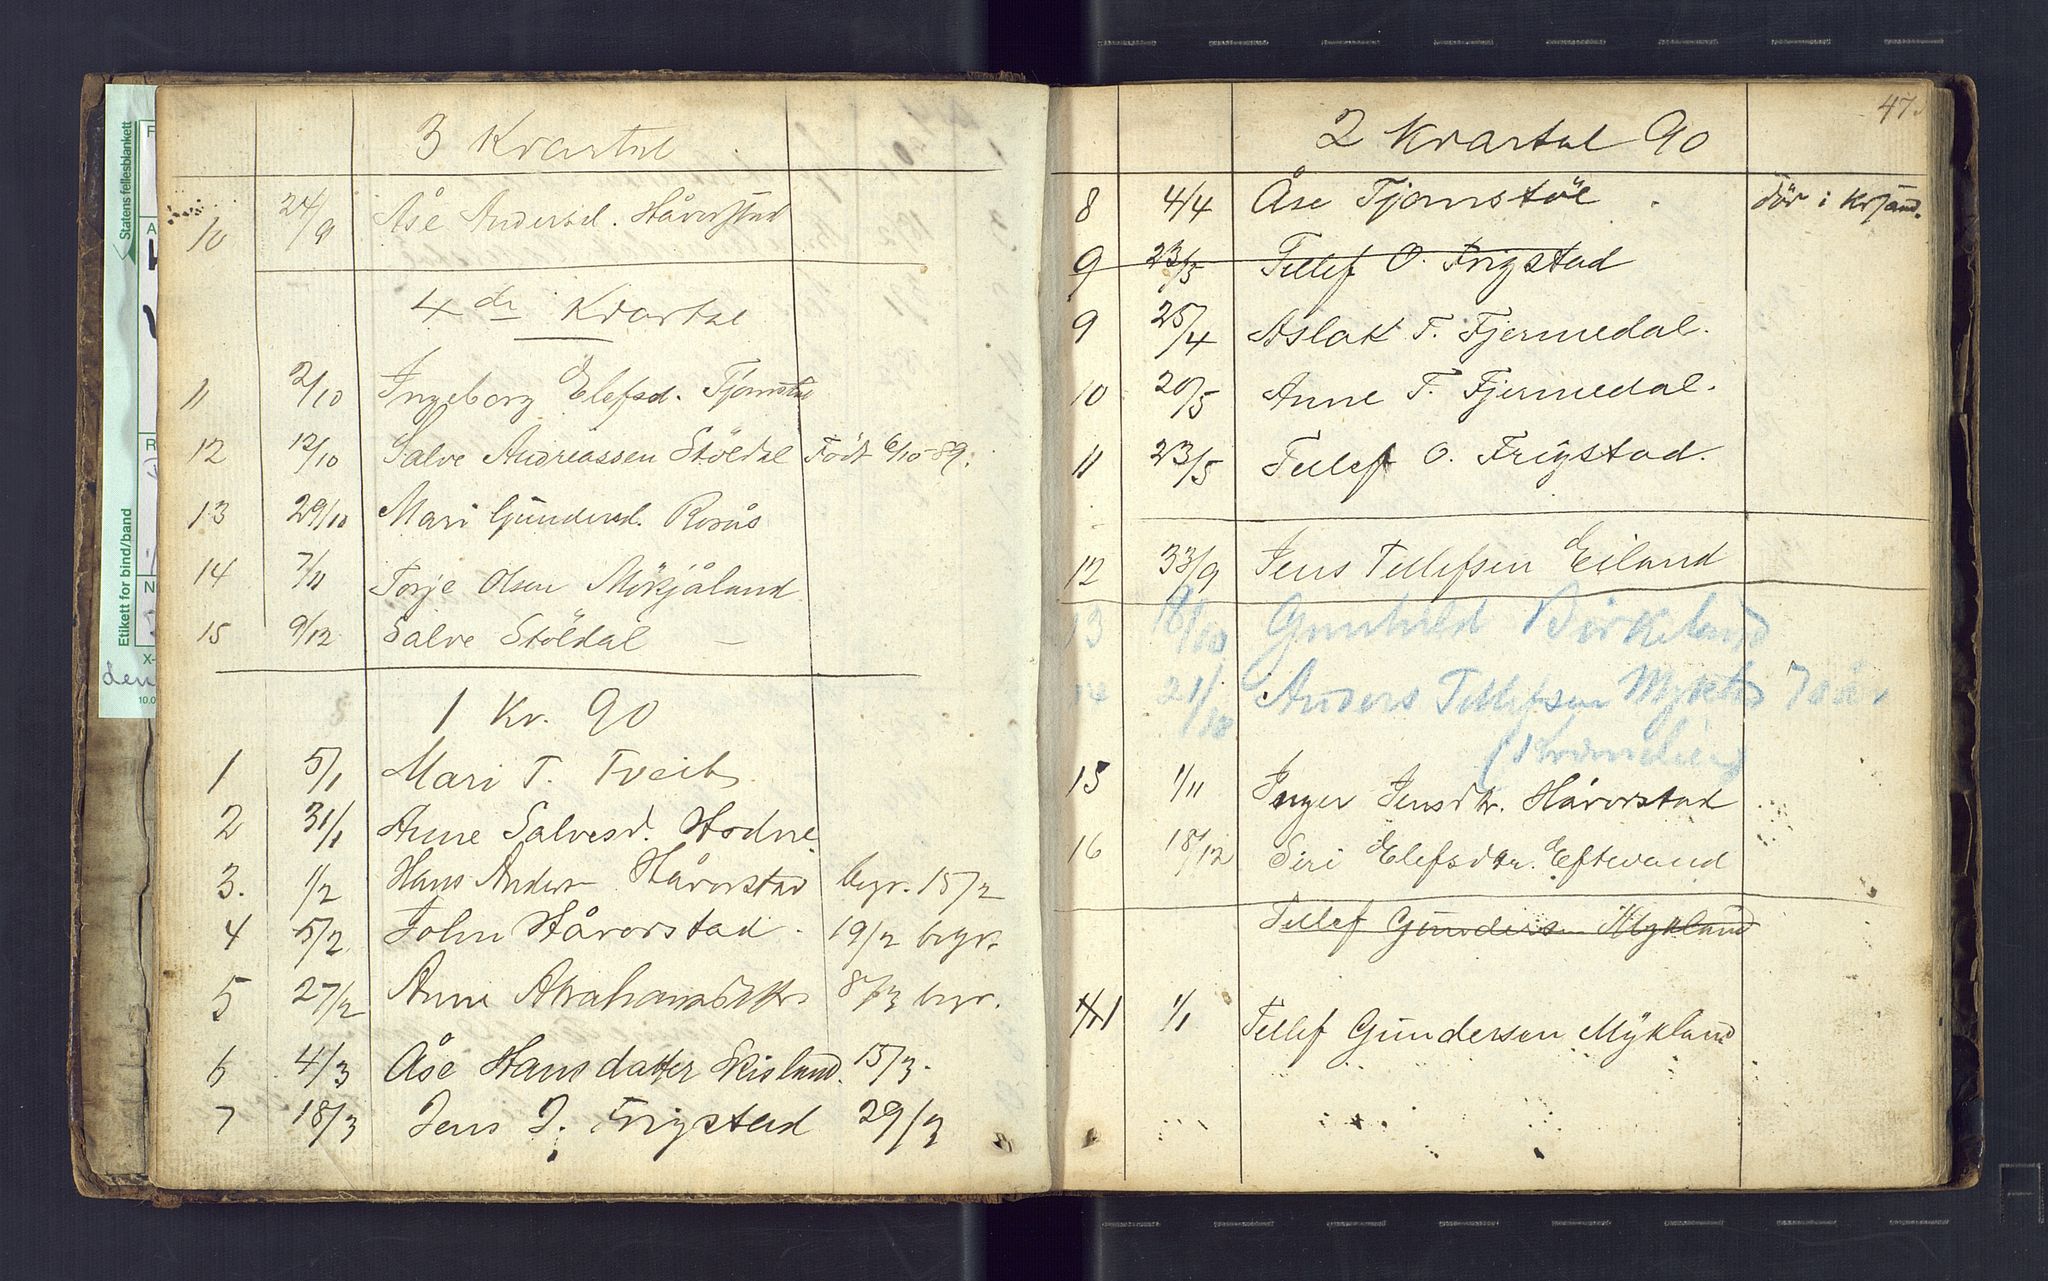 Statens fellesblankett
Etikett for bind/band
3 Kvartal
10 24/9 Åse Andersd. Håvorstad
4de Kvartal
11 2/10 Ingeborg Elefsd. Tjomstøl
12 12/10 Salve Andreassen Stöldal Född 6/10-89.
13 29/10 Mari Gundersd. Rosås
14 7/11 Torje Olsen Mörkjåland
15 9/12 Salve Stöldal —
1 Kv. 90
1 5/1 Mari T. Tveit
2 31/1 Anne Salvesd. Hodne
3. 1/2 Hans Anders Håvorstad begr. 15/2
4 5/2 John Håvorstad. 19/2 begr.
5 27/2 Anne Abrahamsdtr 8/3 begr.
6 4/3 Åse Hansdatter Skisland. 15/3.
7 18/3 Jens J. Frigstad 29/3
47.
2 Kvartal 90
8 4/4 Åse Tjomstöl död i Krsand.
9 23/5 Tellef O. Frigstad
9 25/4 Aslak T. Fjermedal.
10 20/5 Anne T. Fjermedal.
11 23/5 Tellef O. Frigstad.
12 33/9 Jens Tellefsen Eiland
13 18/10 Gunhild Birkeland
14 21/10 Anders Tellefsen Mykld 70 år
15 1/11 Inger Jensdtr. Håvorstad
16 18/12 Siri Elefsdtr. Eftevand
Tellef Gunders Mykland
1 1/1 Tellef Gundersen Mykland